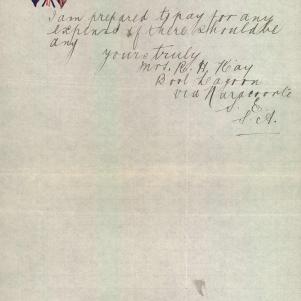 I am prepared to pay for any
expense if there should be
any
yours truly
Mrs. R. H. Kay
Bool Lagoon
via Naracoorte
S. E.
S. A.